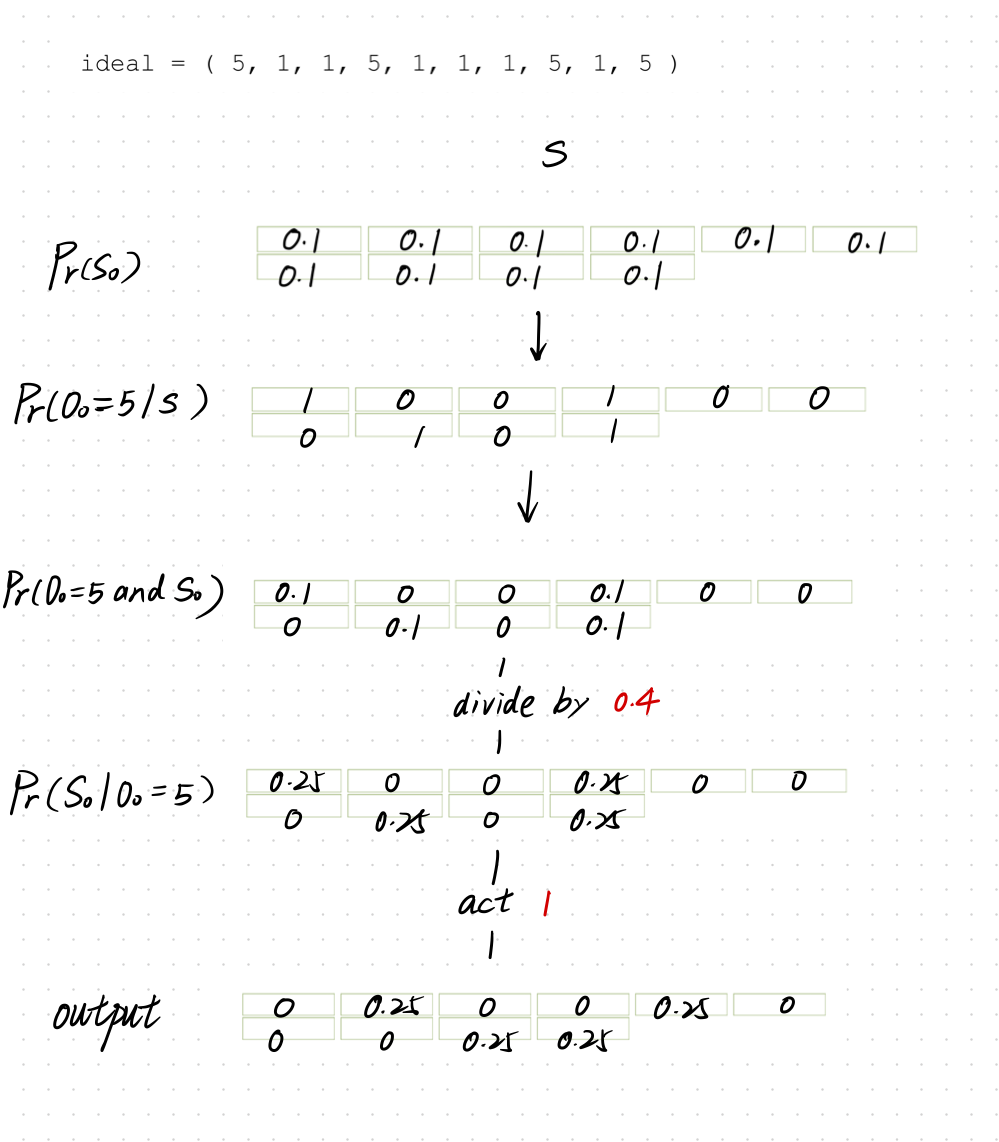 ideal = ( 5, 1, 1, 5, 1, 1, 1, 5, 1, 5 )
S
Pr(S₀) 0.1 0.1 0.1 0.1 0.1 0.1
0.1 0.1 0.1 0.1
Pr(O₀=5|s) 1 0 0 1 0 0
0 1 0 1
Pr(O₀=5 and S₀) 0.1 0 0 0.1 0 0
0 0.1 0 0.1
divide by 0.4
Pr(S₀|O₀=5) 0.25 0 0 0.25 0 0
0 0.25 0 0.25
act 1
output 0 0.25 0 0 0.25 0
0 0 0.25 0.25